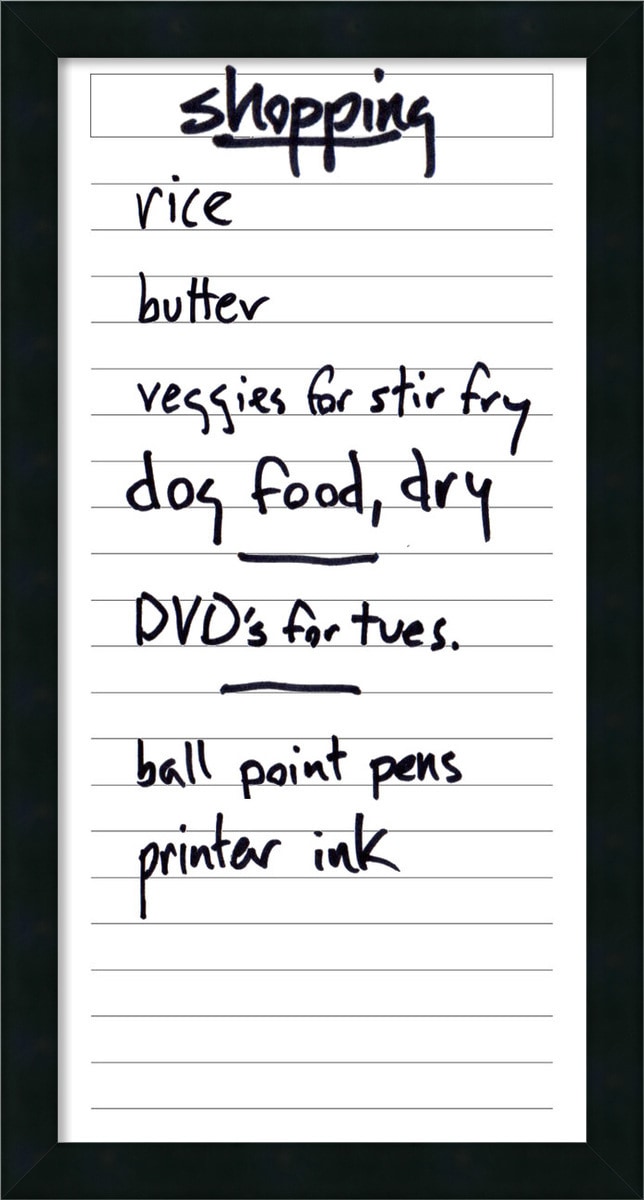 shopping
rice
butter
veggies for stir fry
dog food, dry
DVD's for tues.
ball point pens
printer ink